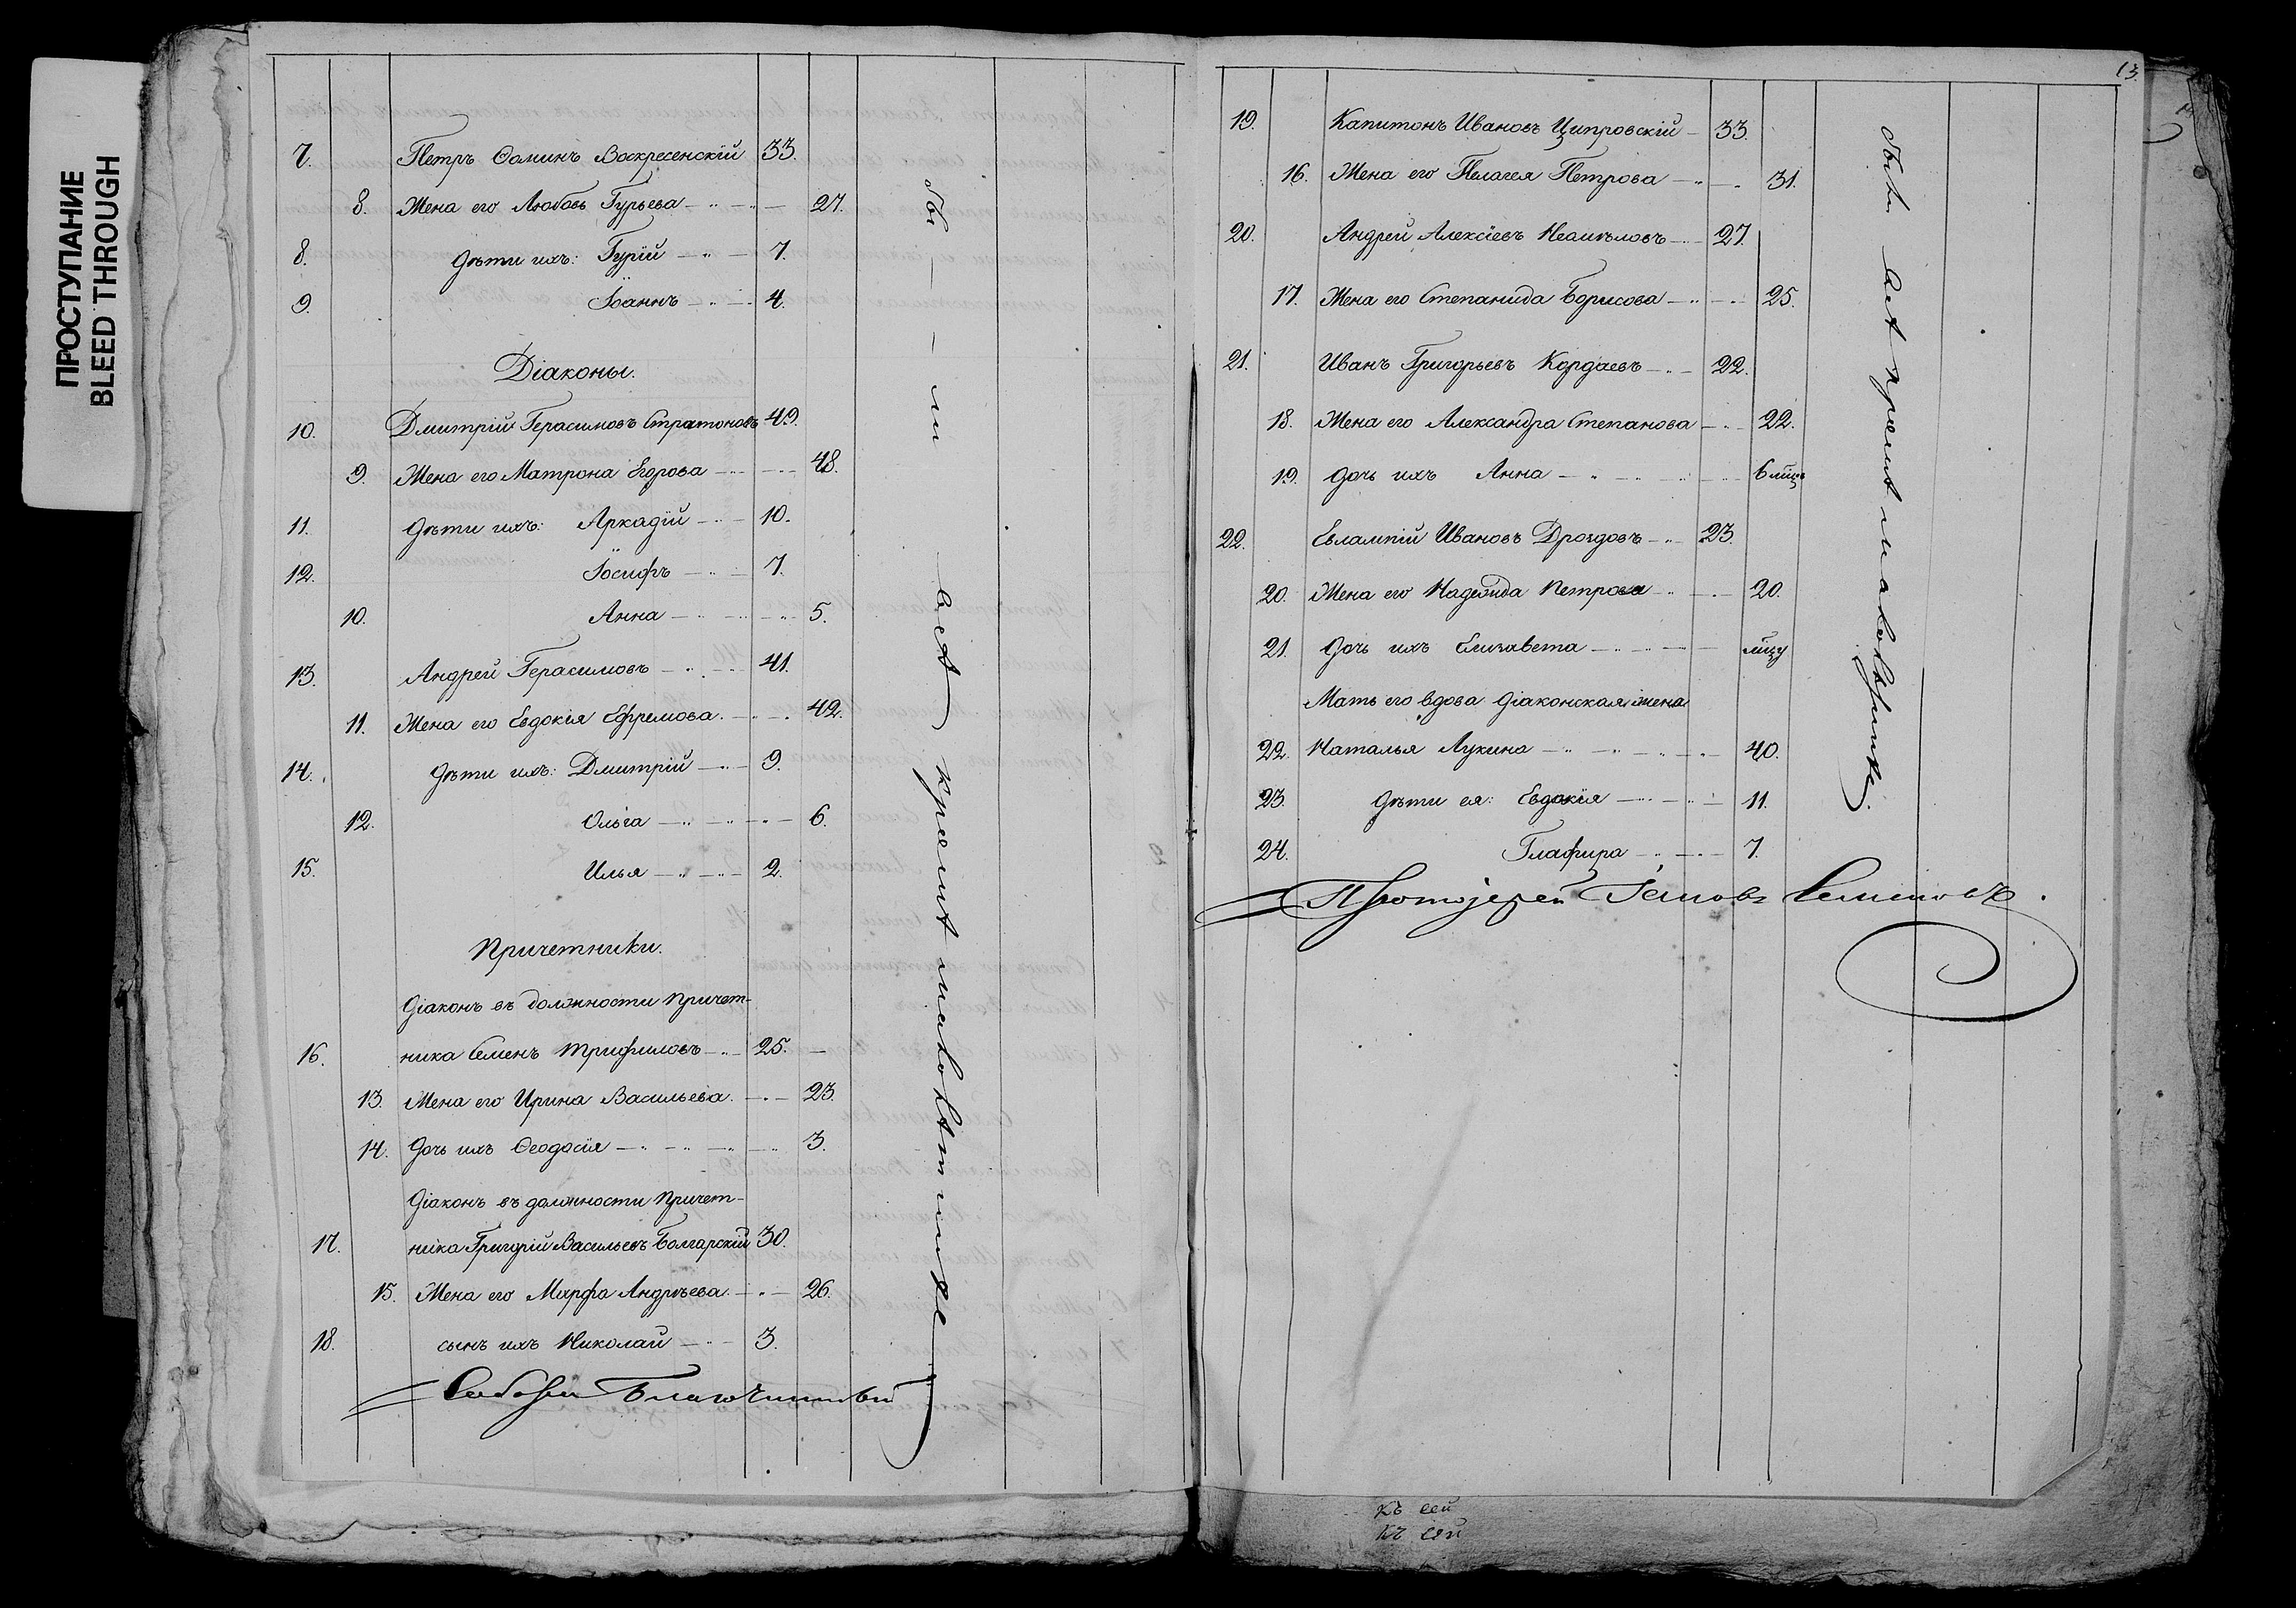 ПРОСТУПАНИЕ
BLEED THROUGH
7. Петръ Ѳоминъ Воскресенскій 33.
8. Жена его Любовь Гурьева 27.
8. Дѣти ихъ: Гурій 7.
9. Іоаннъ 4.
Діаконы.
10. Дмитрій Герасимовъ Стратоновъ 49.
9. Жена его Матрона Егорова 48.
11. Дѣти ихъ: Аркадій 10.
12. Іосифъ 7.
10. Анна 5.
13. Андрей Герасимовъ 41.
11. Жена его Евдокія Ефремова. 42.
14. Дѣти ихъ: Дмитрій 9.
12. Ольга 6.
15. Илья 2.
Причетники.
Діаконъ въ должности причет-
16. ника Семенъ Трифиловъ 25.
13. Жена его Ирина Васильева. 23.
14. Дочь ихъ Ѳеодосія 3.
Діаконъ въ должности Причет-
17. ника Григорій Васильевъ Болгарскій 30.
15. Жена его Марфа Андрѣева. 26.
18. сынъ ихъ Николай 3.
Благочинный
13.
19. Капитонъ Ивановъ Ципровскій 33.
16. Жена его Пелагея Петрова 31.
20. Андрей Алексѣевъ 27.
17. Жена его Степанида Борисова 25.
21. Иванъ Григорьевъ Кордаевъ 22.
18. Жена его Александра Степанова 22.
19. Дочь ихъ Анна 6
22. Евлампій Ивановъ Дроздовъ 23.
20. Жена его Надежда Петрова 20.
21. Дочь ихъ Елизавета
Мать его вдова діаконская жена
22. Наталья Лукина 40.
23. Дѣти ея: Евдокія 11.
24. Глафира 7.
Протоіерей
къ сей
къ сей